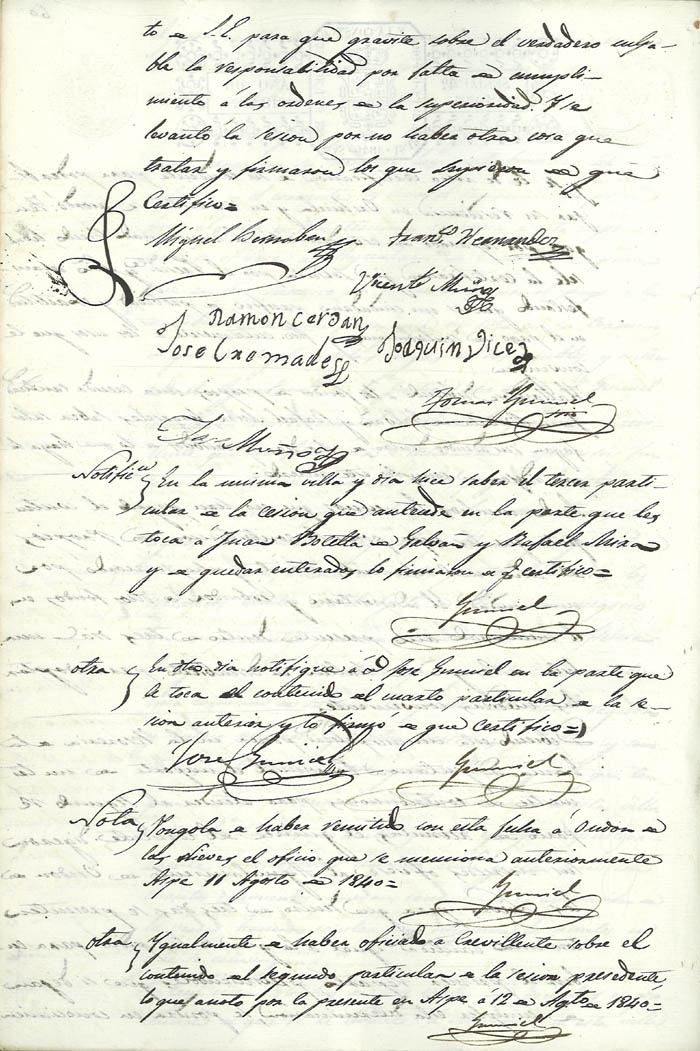 to de S.E. para que gravite sobre el verdadero culpa-
ble la responsabilidad por falta de cumpli-
miento á las ordenes de la superioridad. Y se
levantó la sesion por no haber otra cosa que
tratar y firmaron los que supieron de que
Certifico=
Miguel Franco Hernandez
Vicente Muñoz
Ramon Cerdan
Jose Cremades Joaquin Vicedo
Tomas Gumiel
Muñoz
Notific En la misma villa y dia hice saber el tercer parti-
cular de la cesion que antecede en la parte que les
toca á Juan Botella de Galvañ y Rafael Mira
y de quedar enterados lo firmaron de q certifico=
Gumiel
otra En dho dia notifique á D Jose Gumiel en la parte que
le toca el contenido el cuarto particular de la se-
sion anterior y lo firmó de que certifico=
Jose Gumiel Gumiel
Nota Pongola de haber remitido con esta fecha á Ondon de
las Nieves el oficio que se menciona anteriormente
Aspe 11 Agosto de 1840=
Gumiel
otra Ygualmente de haber oficiado á Crevillente sobre el
contenido el segundo particular de la sesion presedente,
lo que anoto por la presente en Aspe á 12 de Agto de 1840=
Gumiel